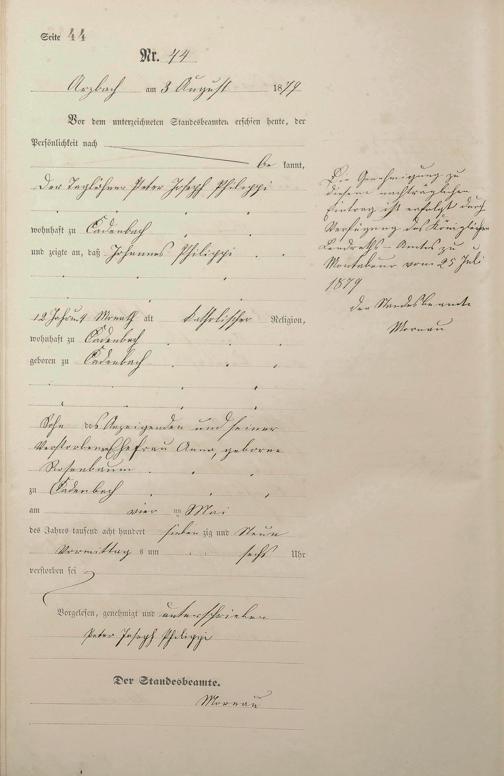 Seite 44
Nr. 44
Arzbach am 3 August 1879
Vor dem unterzeichneten Standesbeamten erschien heute, der
Persönlichkeit nach
be kannt,
Der Taglöhner Peter Joseph Philippi
wohnhaft zu Cadenbach
und zeigte an, daß Johannes Philippi
12 Jahr u 4 Monath alt katholischer Religion,
wohnhaft zu Cadenbach
geboren zu Cadenbach
Sohn des Anzeigenden und seiner
Verstorbenen Ehefrau Anna, geborene
Rosenbaum
zu Cadenbach
am vier ten Mai
des Jahres tausend acht hundert sieben zig und Neun
Vormittag s um sechs Uhr
verstorben sei
Vorgelesen, genehmigt und unterschrieben
Peter Joseph Philippi
Der Standesbeamte.
Mornau
Die Genehmigung zu
diesem nachträglichen
Eintrag ist erfolgt durch
Verfügung des Königlichen
Landraths-Amtes zu
Montabaur vom 25 Juli
1879
der Standesbeamte
Mornau